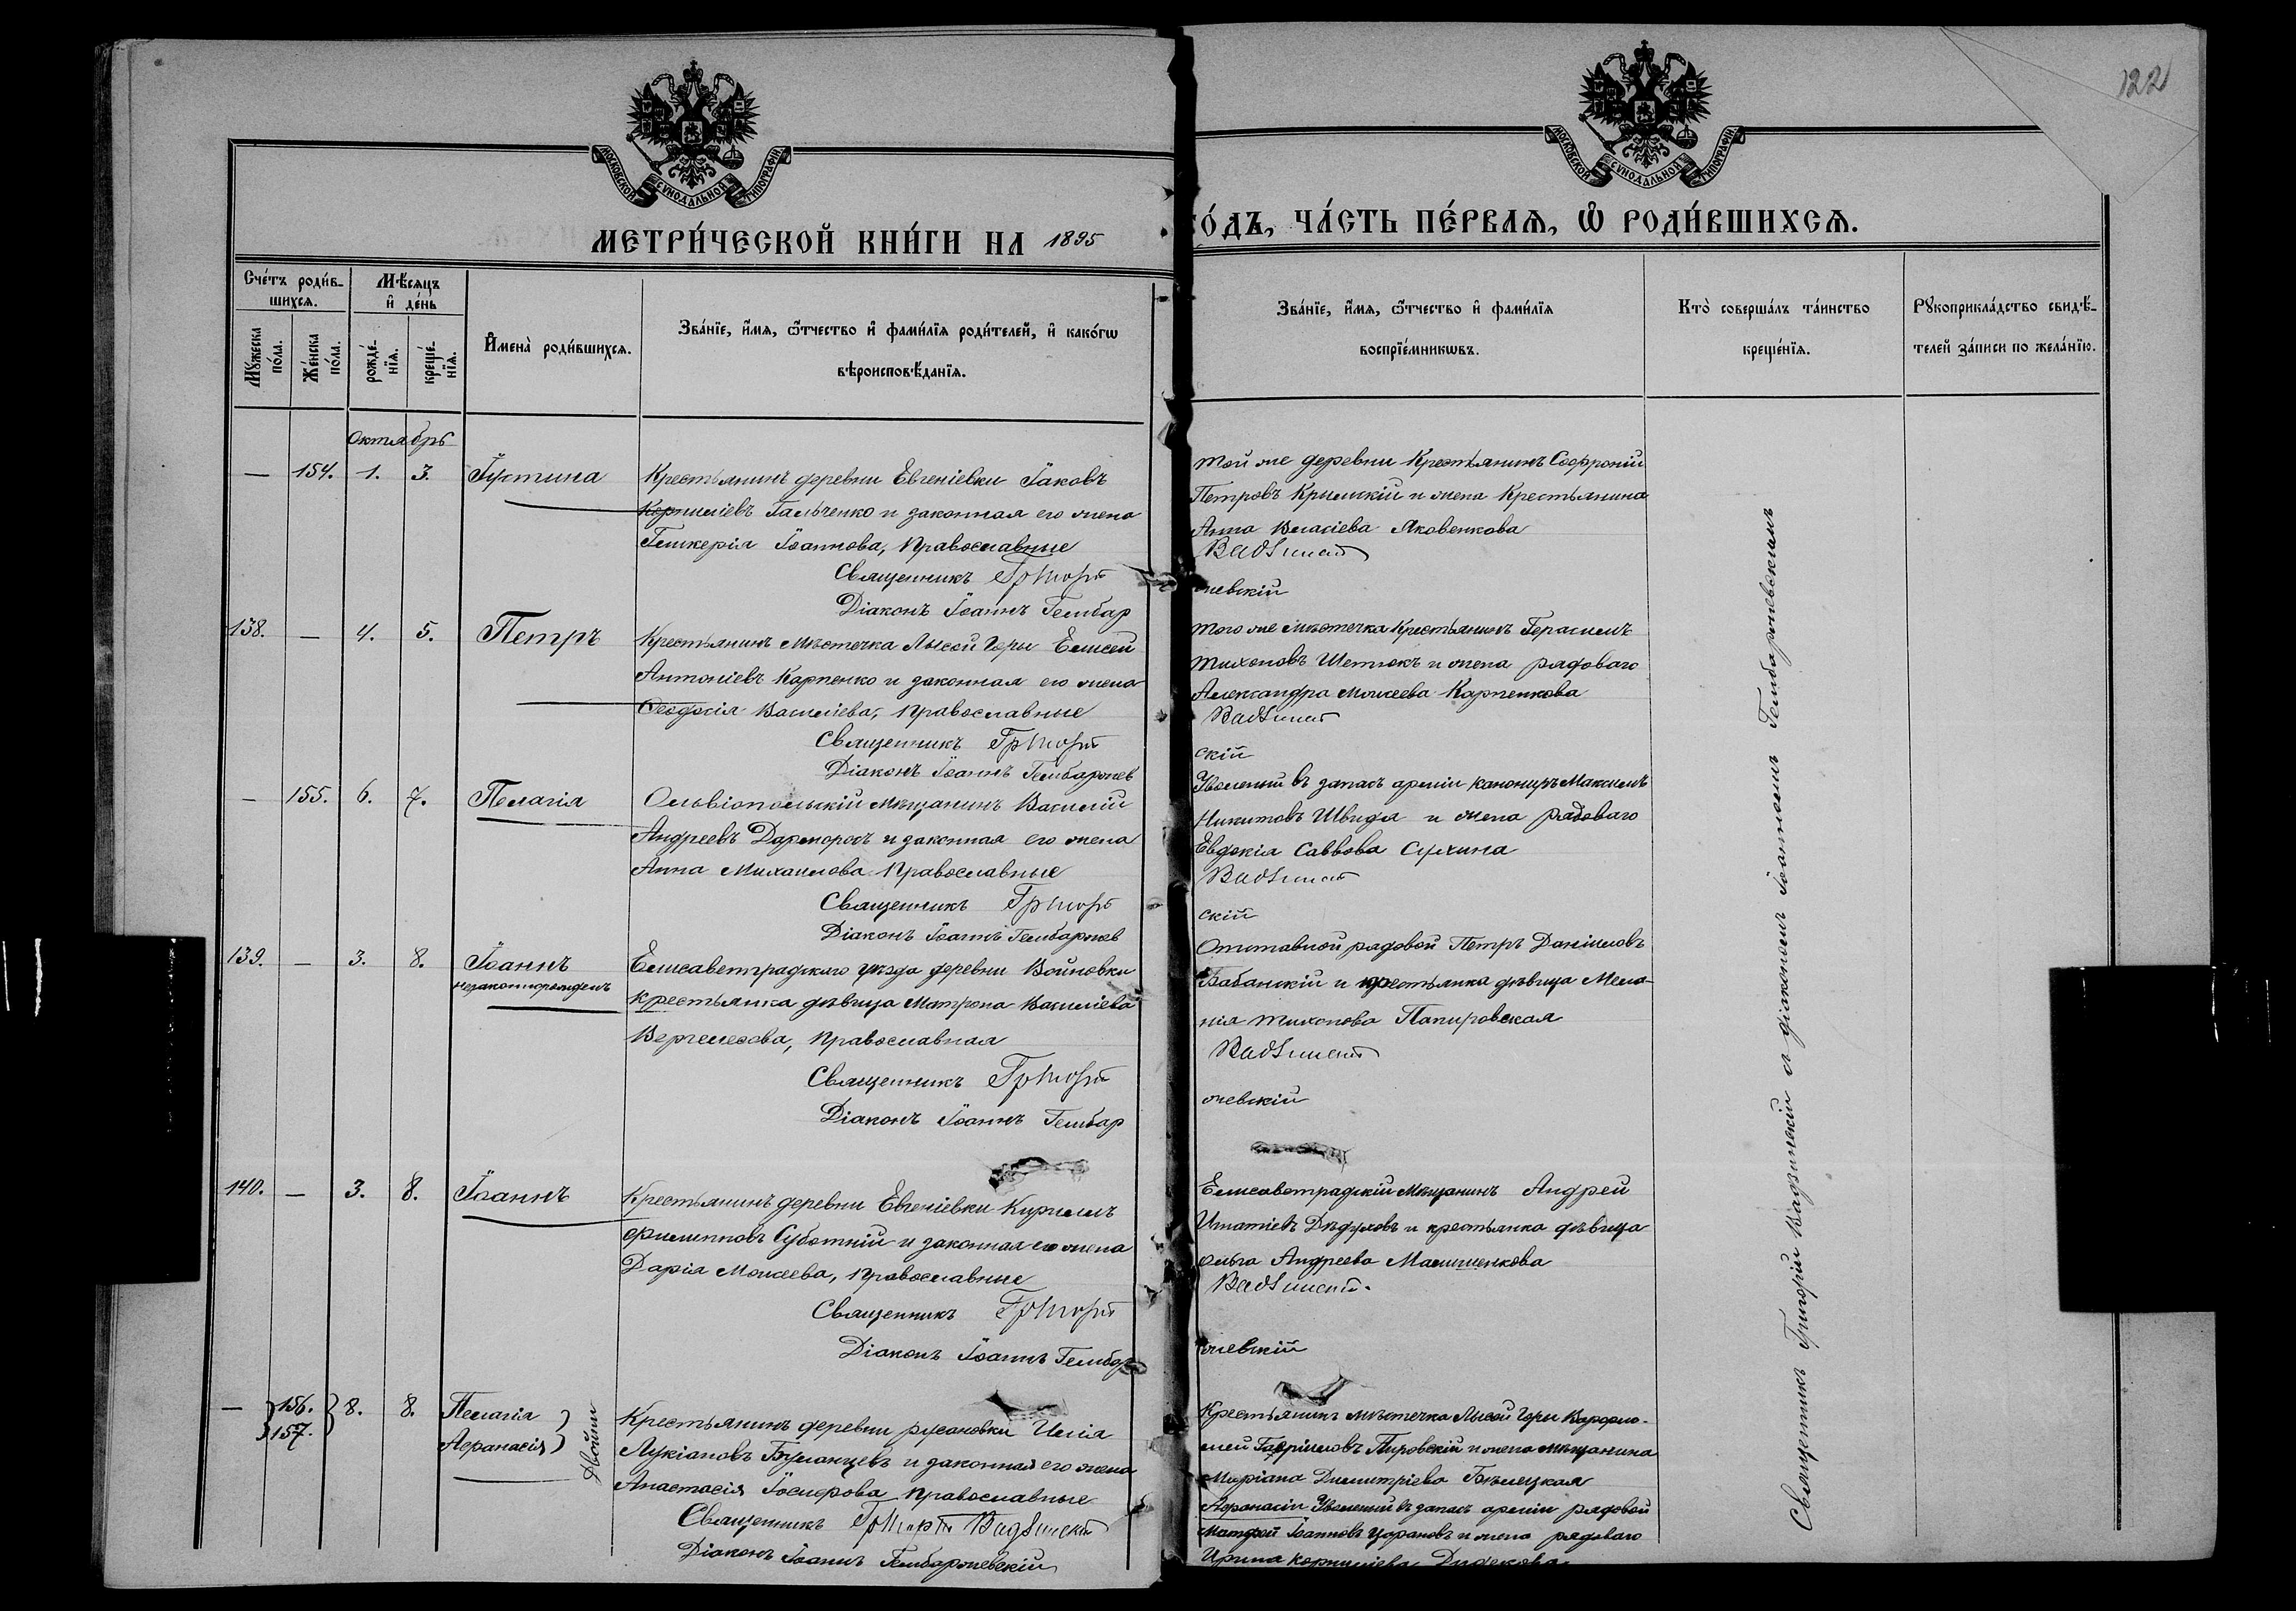 122
МОСКОВСКОЙ СѴНОДАЛЬНОЙ ТИПОГРАФІИ
МОСКОВСКОЙ СѴНОДАЛЬНОЙ ТИПОГРАФІИ
МЕТРИ́ЧЕСКОЙ КНИ́ГИ НА 1895
ГО́ДЪ, ЧА́СТЬ ПЕ́РВАѦ, Ѡ҆ РОДИ́ВШИХСѦ.
Сче́тъ роди́в-
шихсѧ.
Мѣ́сѧцъ
и҆ де́нь
Мꙋ́жеска
по́ла.
Же́нска
по́ла.
рожде́-
нїѧ.
креще́-
нїѧ.
И҆мена̀ роди́вшихсѧ.
Зва́нїе, и҆́мѧ, ѻ҆́тчество и҆ фами́лїѧ роди́телей, и҆ како́гѡ
вѣроисповѣ́данїѧ.
Зва́нїе, и҆́мѧ, ѻ҆́тчество и҆ фами́лїѧ
воспрїе́мникѡвъ.
Кто̀ соверша́лъ та́инство
креще́нїѧ.
Рꙋкоприкла́дство свидѣ́-
телей за́писи по жела́нїю.
Октябрь
— 154. 1. 3. Іустина
Крестьянинъ деревни Евгеніевки Іаковъ
Корниліевъ Гальченко и законная его жена
Гликерія Іоаннова, Православные
Священникъ Григорій
Діаконъ Іоаннъ Гембар
Той же деревни Крестьянинъ Софроній
Петровъ Крымскій и жена Крестьянина
Анна Власіева Яковенкова
Вадзинскій
жевскій
138. — 4. 5. Петръ
Крестьянинъ Мѣстечка Лысой Горы Елисей
Антоніевъ Карпенко и законная его жена
Ѳеодосія Василіева, Православные
Священникъ Григорій
Діаконъ Іоаннъ Гембаржев
Того же мѣстечка Крестьянинъ Герасимъ
Тихоновъ Шетюкъ и жена рядоваго
Александра Моисеева Карпенкова
Вадзинскій
скій
— 155. 6. 7. Пелагія
Ольвіопольскій мѣщанинъ Василій
Андреевъ Дарморосъ и законная его жена
Анна Михаилова Православные
Священникъ Григорій
Діаконъ Іоаннъ Гембаржев
Уволенный въ запасъ арміи канониръ Максимъ
Никитовъ Швидя и жена рядоваго
Евдокія Саввова Сухина
Вадзинскій
скій
139. — 3. 8. Іоаннъ
незаконнорожденъ
Елисаветградскаго уѣзда деревни Войновки
крестьянка дѣвица Матрона Василіева
Вергелесова, Православная
Священникъ Григорій
Діаконъ Іоаннъ Гембар
Отставной рядовой Петръ Даніиловъ
Бабанскій и крестьянка дѣвица Мела-
нія Тихонова Папировская
Вадзинскій
жевскій
140. — 3. 8. Іоаннъ
Крестьянинъ деревни Евгеніевки Кириллъ
Филипповъ Суботній и законная его жена
Дарія Моисеева, Православные
Священникъ Григорій
Діаконъ Іоаннъ Гембар
Елисаветградскій Мѣщанинъ Андрей
Игнатіевъ Дѣдуховъ и крестьянка дѣвица
Ольга Андреева Малишенкова
Вадзинскій.
жевскій
— 156. 157. 8. 8. Пелагія
Аѳанасія
двойни
Крестьянинъ деревни Русановки Илія
Лукіановъ Буланцевъ и законная его жена
Анастасія Іосифова Православные
Священникъ Григорій Вадзинскій
Діаконъ Іоаннъ Гембаржевскій
Крестьянинъ мѣстечка Лысой Горы Варфоло-
мей Гавріиловъ Пировскій и жена мѣщанина
Маріана Димитріева Бѣлецкая
Аѳанасіи Уволенный въ запасъ арміи рядовой
Матѳей Іоанновъ Царановъ и жена рядоваго
Ирина Корниліева Дидекова
Священникъ Григорій Вадзинскій и діаконъ Іоанномъ Гембаржевскимъ